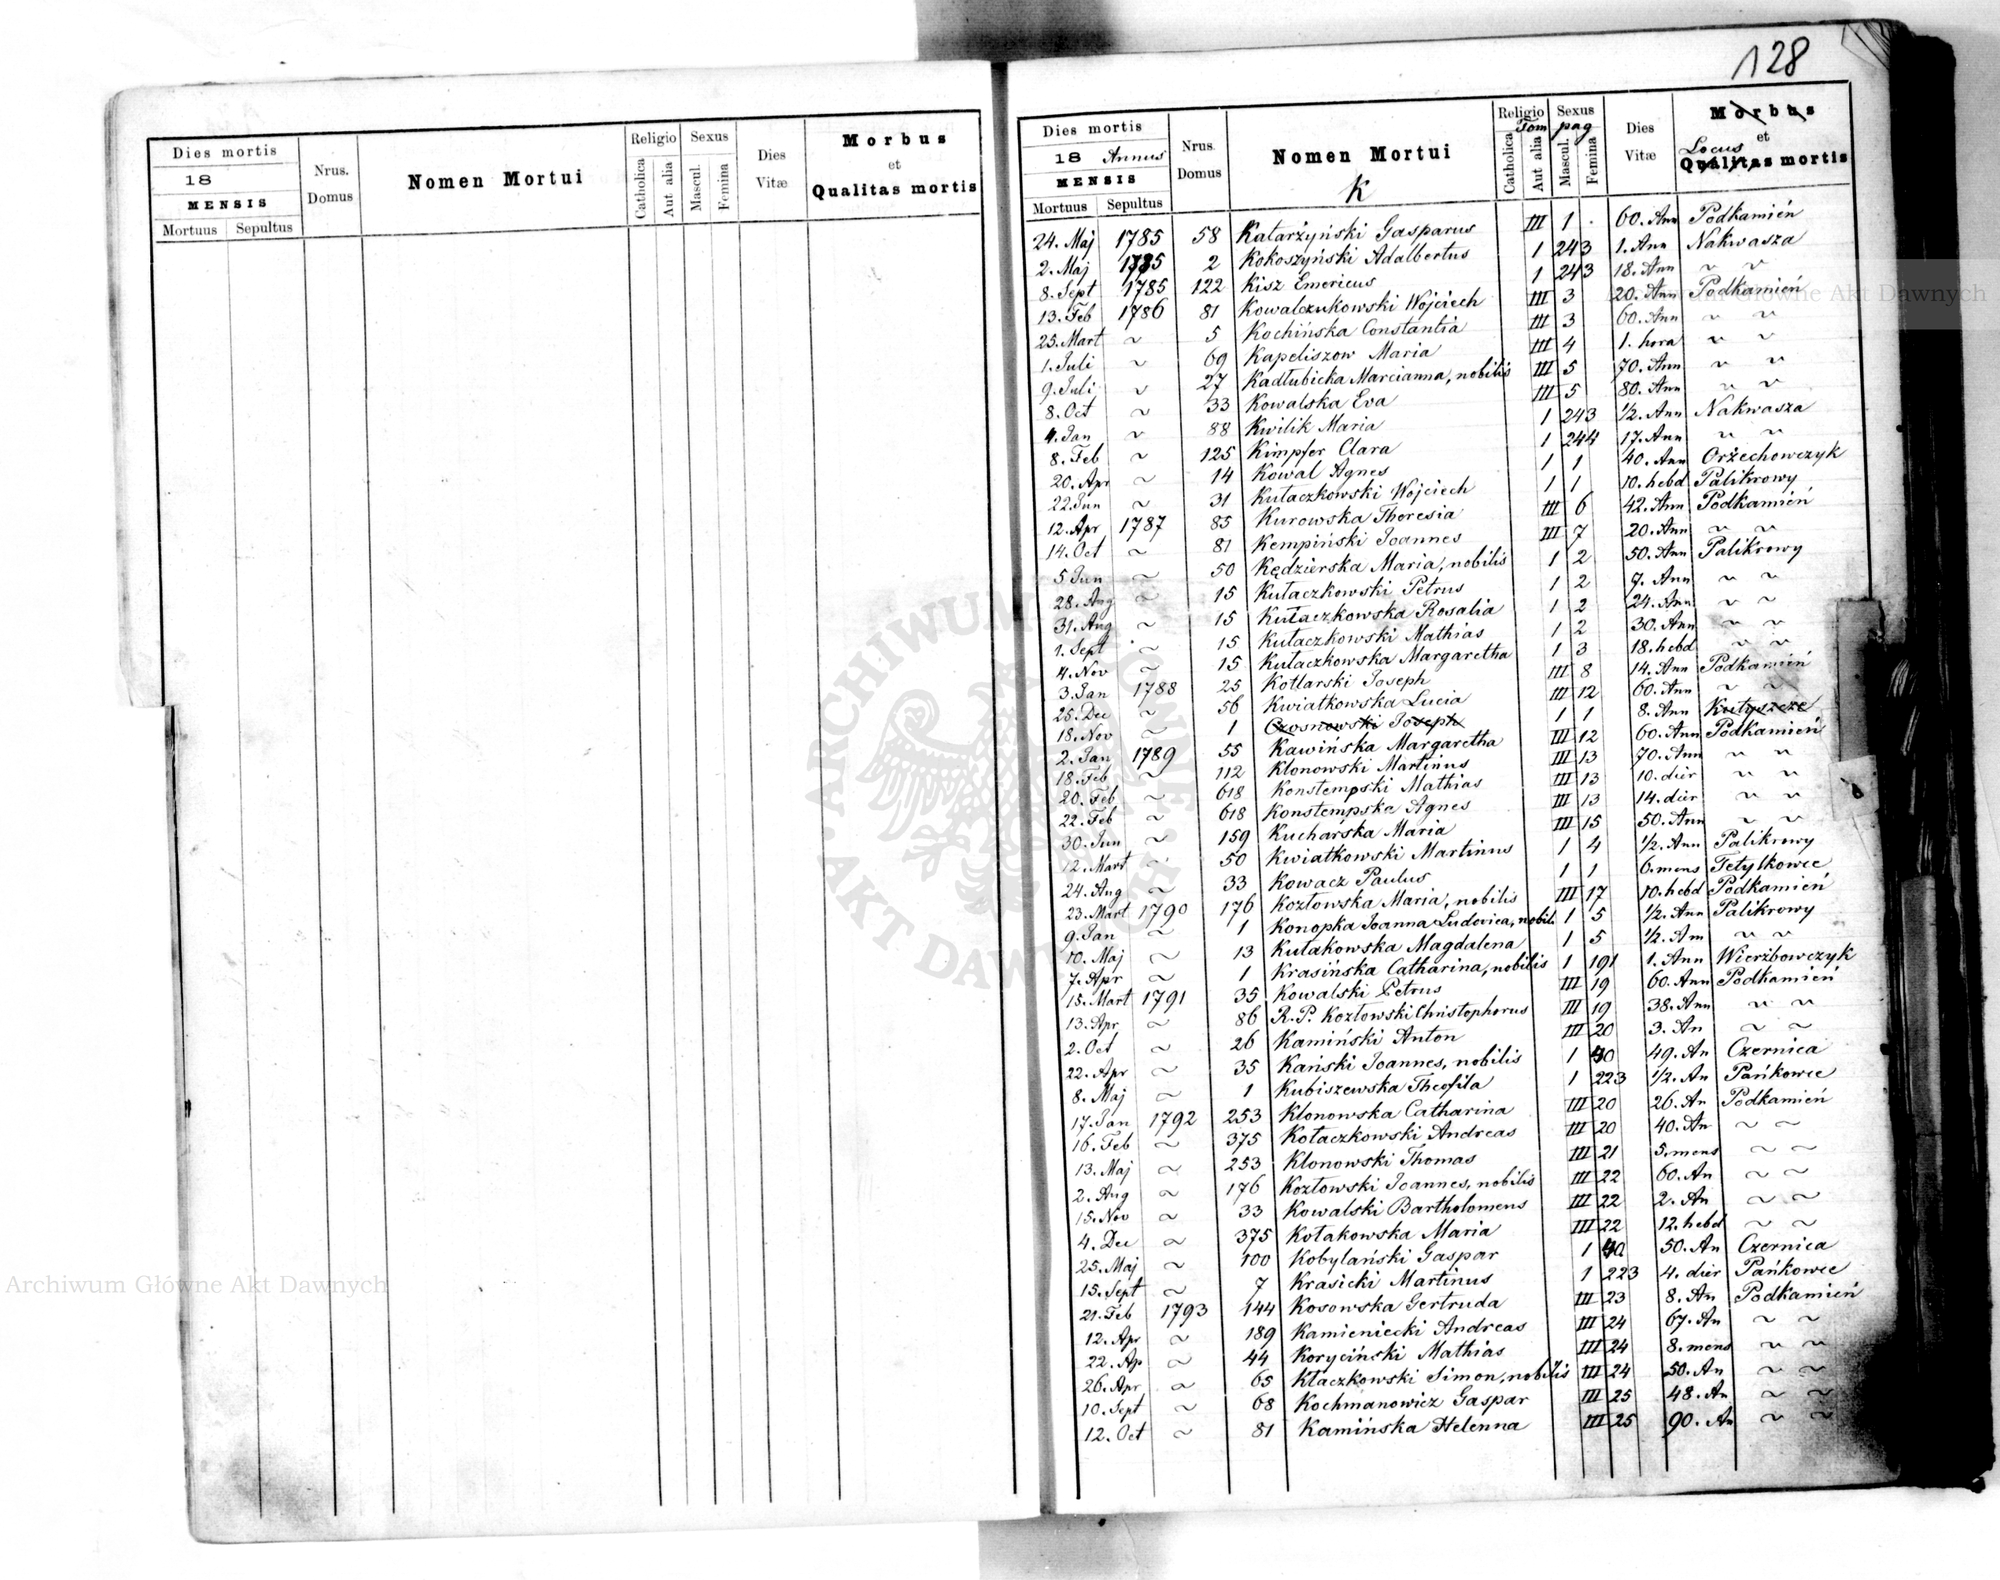 128
Dies mortis
18
MENSIS
Mortuus Sepultus
Nrus. Domus
Nomen Mortui
Religio
Catholica Aut alia
Sexus
Mascul. Femina
Dies Vitæ
Morbus
et
Qualitas mortis
Dies mortis
18 Annus
MENSIS
Mortuus Sepultus
Nrus. Domus
Nomen Mortui
K
Religio Tom
Catholica Aut alia
Sexus pag
Mascul. Femina
Dies Vitæ
Morbus
et
Locus
Qualitas mortis
24. Maj 1785 58 Katarżyński Gasparus III 1 60. Ann Podkamień
2. Maj 1785 2 Kokoszyński Adalbertus 1 243 1. Ann Nakwasza
8. Sept 1785 122 Kisz Emericus 1 243 18. Ann ~ ~
13. Feb 1786 81 Kowalczukowski Wojciech III 3 20. Ann Podkamień
25. Mart ~ 5 Kochińska Constantia III 3 60. Ann ~ ~
1. Juli ~ 69 Kapeliszow Maria III 4 1. hora ~ ~
9. Juli ~ 27 Kadłubicka Marcianna, nobilis III 5 70. Ann ~ ~
8. Oct ~ 33 Kowalska Eva III 5 80. Ann ~ ~
4. Jan ~ 88 Kwilik Maria 1 243 1/2. Ann Nakwasza
8. Feb ~ 125 Kimpfer Clara 1 244 17. Ann ~ ~
20. Apr ~ 14 Kowal Agnes 1 1 40. Ann Orżechowczyk
22. Jun ~ 31 Kułaczkowski Wojciech 1 1 10. hebd Palikrowy
12. Apr 1787 85 Kurowska Theresia III 6 42. Ann Podkamień
14. Oct ~ 81 Kempiński Joannes III 7 20. Ann ~ ~
5 Jun ~ 50 Kędzierska Maria, nobilis 1 2 50. Ann Palikrowy
28. Aug ~ 15 Kułaczkowski Petrus 1 2 7. Ann ~ ~
31. Aug ~ 15 Kułaczkowska Rosalia 1 2 24. Ann ~ ~
1. Sept ~ 15 Kułaczkowski Mathias 1 2 30. Ann ~ ~
4. Nov ~ 15 Kułaczkowska Margaretha 1 3 18. hebd ~ ~
3. Jan 1788 25 Kotlarski Joseph III 8 14. Ann Podkamień
25. Dec ~ 56 Kwiatkowska Lucia III 12 60. Ann ~ ~
18. Nov ~ 1 Czosnowski Joseph 1 1 8. Ann Kutyszcze
2. Jan 1789 55 Kawińska Margaretha III 12 60. Ann Podkamień
18. Feb ~ 112 Klonowski Martinus III 13 70. Ann ~ ~
20. Feb ~ 618 Konstempski Mathias III 13 10. dier ~ ~
22. Feb ~ 618 Konstempska Agnes III 13 14. dier ~ ~
30. Jun ~ 159 Kucharska Maria III 15 50. Ann ~ ~
12. Mart ~ 50 Kwiatkowski Martinus 1 4 1/2. Ann Palikrowy
24. Aug ~ 33 Kowacz Paulus 1 1 6. mens Tetylkowce
23. Mart 1790 176 Kozłowska Maria, nobilis III 17 10. hebd Podkamień
9. Jan ~ 1 Konopka Joanna Ludovica, nobil. 1 5 1/2. Ann Palikrowy
10. Maj ~ 13 Kułakowska Magdalena 1 5 1/2. Ann ~ ~
7. Apr ~ 1 Krasińska Catharina, nobilis 1 191 1. Ann Wierzbowczyk
15. Mart 1791 35 Kowalski Petrus III 19 60. Ann Podkamień
13. Apr ~ 86 R. P. Kozłowski Christophorus III 19 38. Ann ~ ~
2. Oct ~ 26 Kamiński Anton III 20 3. An ~ ~
22. Apr ~ 35 Kański Joannes, nobilis 1 40 49. An Czernica
8. Maj ~ 1 Kubiszewska Theofila 1 223 1/2. An Pańkowce
17. Jan 1792 253 Klonowska Catharina III 20 26. An Podkamień
16. Feb ~ 375 Kołaczkowski Andreas III 20 40. An ~ ~
13. Maj ~ 253 Klonowski Thomas III 21 5. mens ~ ~
2. Aug ~ 176 Kozłowski Joannes, nobilis III 22 60. An ~ ~
15. Nov ~ 33 Kowalski Bartholomeus III 22 2. An ~ ~
4. Dec ~ 375 Kołakowska Maria III 22 12. hebd ~ ~
25. Maj ~ 100 Kobylański Gaspar 1 40 50. An Czernica
15. Sept ~ 7 Krasicki Martinus 1 223 4. dier Pańkowce
21. Feb 1793 144 Kosowska Gertruda III 23 8. An Podkamień
12. Apr ~ 189 Kamieniecki Andreas III 24 67. An ~ ~
22. Ap ~ 44 Koryciński Mathias III 24 8. mens ~ ~
26. Apr ~ 65 Kłaczkowski Simon, nobilis III 24 50. An ~ ~
10. Sept ~ 68 Kochmanowicz Gaspar III 25 48. An ~ ~
12. Oct ~ 81 Kamińska Helenna III 25 90. An ~ ~
Archiwum Główne Akt Dawnych
Archiwum Główne Akt Dawnych
ARCHIWUM GŁÓWNE AKT DAWNYCH